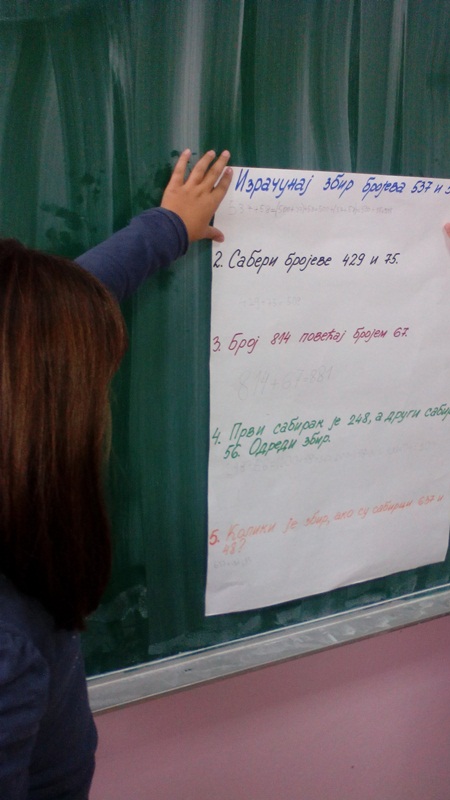 Израчунај збир бројева 537 и 5
2. Сабери бројеве 429 и 75.
3. Број 814 повећај бројем 67.
4. Први сабирак је 248, а други саби
56. Одреди збир.
5. Колики је збир, ако су сабирци 637 и
48?